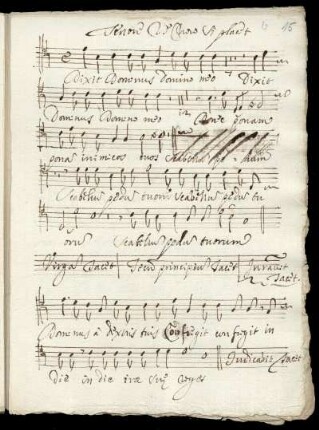 Tenore Del Choro 15
Dixit Dominus domino meo Dixit
Dominus Domino meo Donec ponam
pona inimicos tuos scabellu
Scabellu pedum tuoru scabellu pedu tu
oru Scabellu pedu tuorum
Virga Tacet Tecu principiu Tacet Juravit Tacet
Dominus a dextris tuis Confregit confregit in
die in die irae suę reges Judicabit Tacet